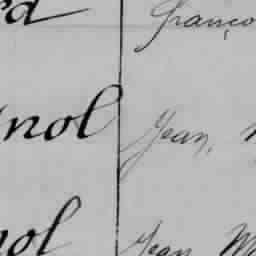 rd franço
nol Jean,
nol Jean